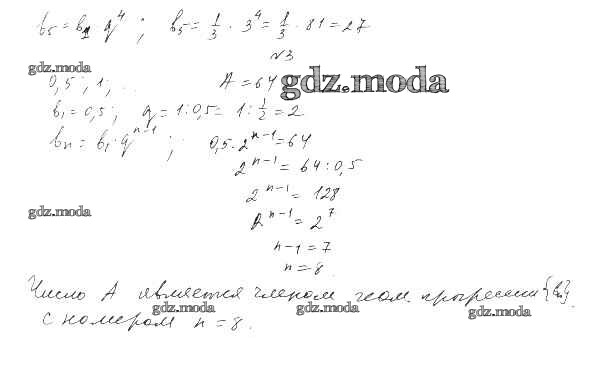 b₅ = b₁ q⁴ ; b₅ = 1/3 · 3⁴ = 1/3 · 81 = 27
№3
gdz.moda
0,5 ; 1 ; ... A = 64 gdz.moda
b₁ = 0,5 ; q = 1 : 0,5 = 1 : 1/2 = 2
bₙ = b₁ · qⁿ⁻¹ ; 0,5 · 2ⁿ⁻¹ = 64
2ⁿ⁻¹ = 64 : 0,5
2ⁿ⁻¹ = 128
gdz.moda
2ⁿ⁻¹ = 2⁷
n - 1 = 7
n = 8.
Число A является членом геом. прогрессии {bₙ}
gdz.moda gdz.moda gdz.moda
с номером n = 8.